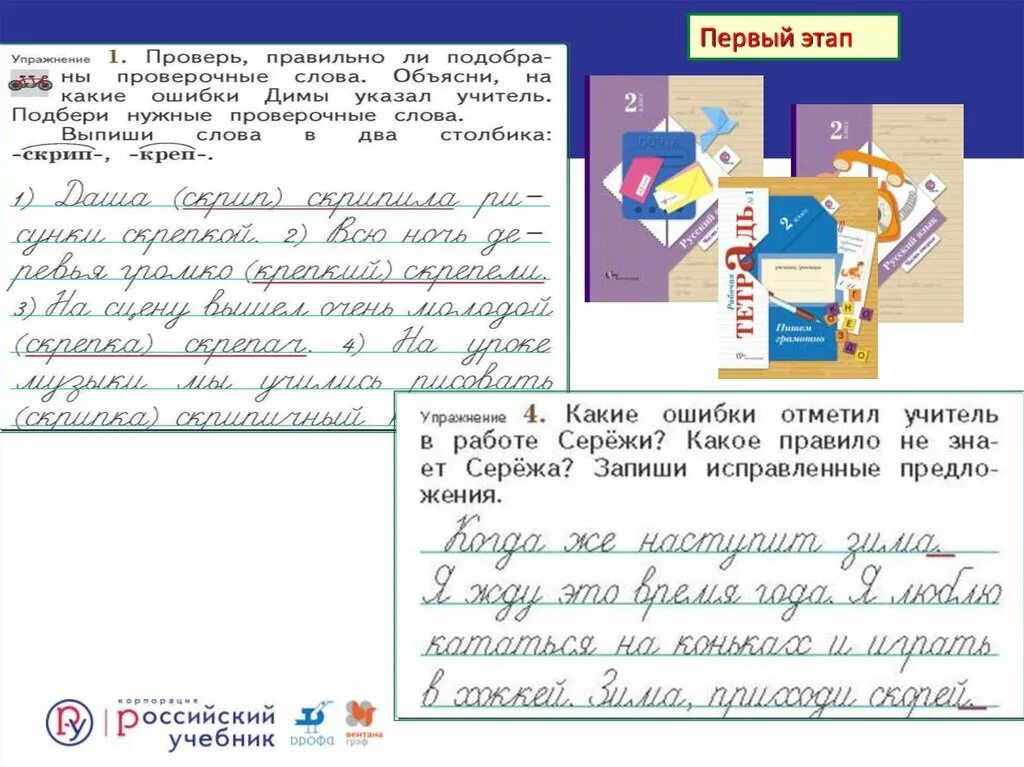 Первый этап
Упражнение 1. Проверь, правильно ли подобра-
ны проверочные слова. Объясни, на
какие ошибки Димы указал учитель.
Подбери нужные проверочные слова.
Выпиши слова в два столбика:
-скрип-, -креп-.
1) Даша (скрип) скрипила ри-
сунки скрепкой. 2) Всю ночь де-
ревья громко (крепкий) скрепели.
3) На сцену вышел очень молодой
(скрепка) скрепач. 4) На уроке
музыки мы учились рисовать
(скрипка) скрипичный
2 класс
ПОЧТА
Русский язык
2 класс
Русский язык
Рабочая
ТЕТРАДЬ №1
2 класс
Пишем
грамотно
Упражнение 4. Какие ошибки отметил учитель
в работе Серёжи? Какое правило не зна-
ет Серёжа? Запиши исправленные предло-
жения.
Когда же наступит зима.
Я жду это время года. Я люблю
кататься на коньках и играть
в хоккей. Зима, приходи скорей.
корпорация
российский
учебник
дрофа
вентана
граф